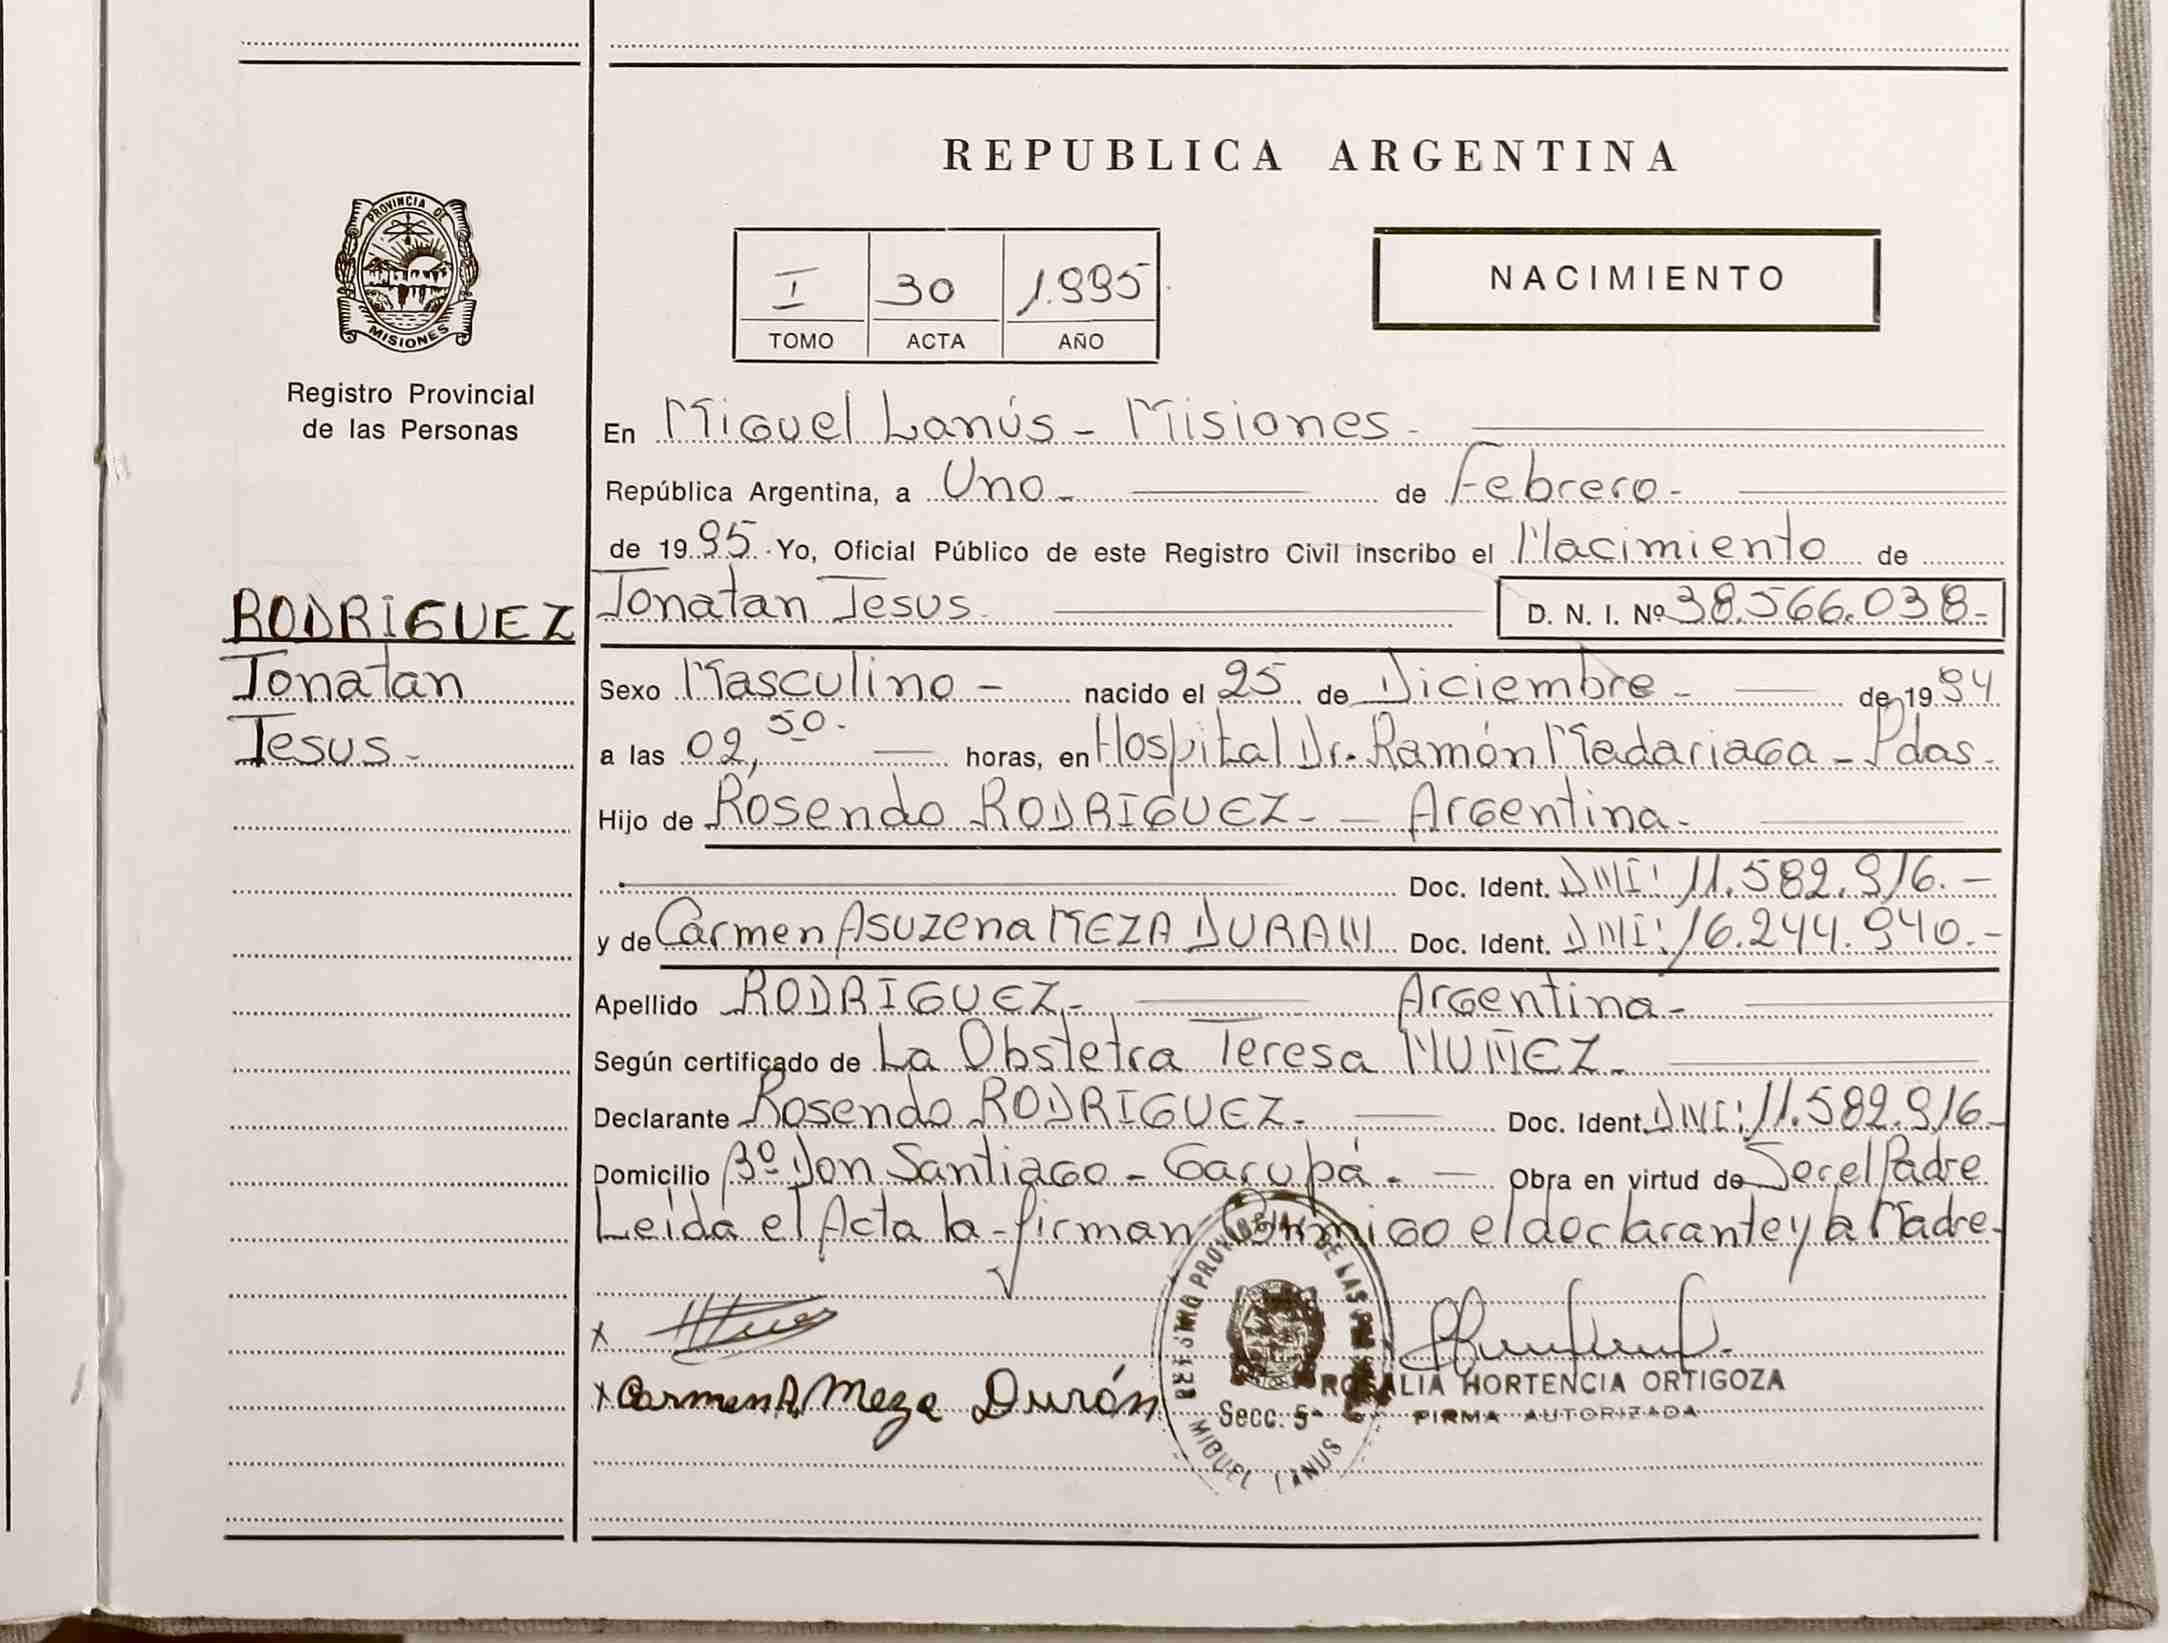 REPUBLICA ARGENTINA
PROVINCIA DE
MISIONES
Registro Provincial
de las Personas
I 30 1.995
TOMO ACTA AÑO
NACIMIENTO
RODRIGUEZ
Jonatan
Jesus.-
En Miguel Lanús - Misiones -
República Argentina, a Uno - de Febrero -
de 1995 Yo, Oficial Público de este Registro Civil inscribo el Nacimiento de
Jonatan Jesus. D. N. I. Nº 38.566.038.-
Sexo Masculino - nacido el 25 de Diciembre - de 1994
a las 02,50.- horas, en Hospital Dr. Ramón Madariaga - Pdas.
Hijo de Rosendo RODRIGUEZ - - Argentina -
Doc. Ident. DNI: 11.582.916.-
y de Carmen Asuzena MEZA DURAN Doc. Ident. DNI: 16.244.940.-
Apellido RODRIGUEZ.- Argentina -
Según certificado de La Obstetra Teresa NUÑEZ -
Declarante Rosendo RODRIGUEZ - Doc. Ident. DNI: 11.582.916-
Domicilio Bº Don Santiago - Garupá. - Obra en virtud de Ser el Padre
Leida el Acta la firman Conmigo el declarante y la Madre.
x
x Carmen A. Meza Durón
REGISTRO PROVINCIAL DE LAS
Secc. 5ª
MIGUEL LANUS
ROSALIA HORTENCIA ORTIGOZA
FIRMA AUTORIZADA